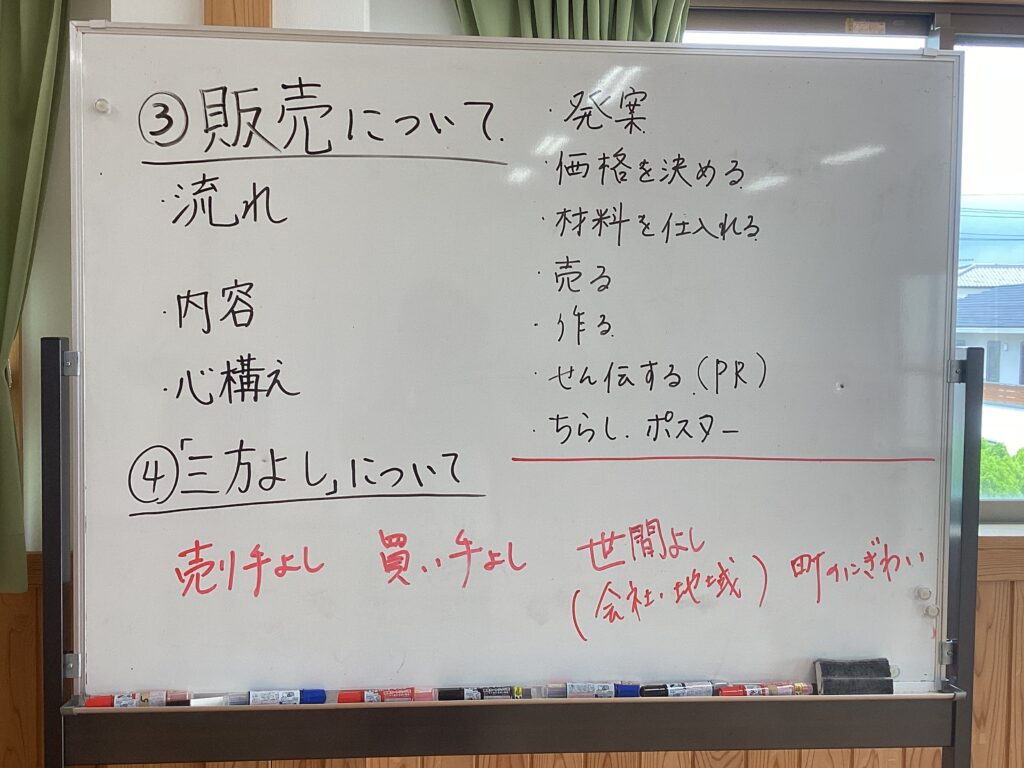 ③販売について
・流れ
・内容
・心構え
・発案
・価格を決める
・材料を仕入れる
・売る
・作る
・せん伝する(PR)
・ちらし、ポスター
④「三方よし」について
売り手よし 買い手よし 世間よし
(会社・地域) 町のにぎわい